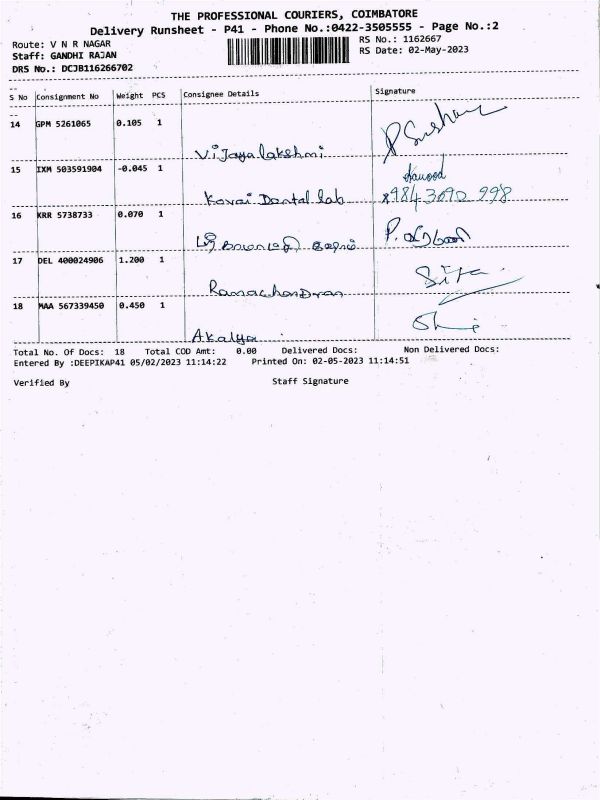 THE PROFESSIONAL COURIERS, COIMBATORE
Delivery Runsheet - P41 - Phone No.:0422-3505555 - Page No.:2
Route: V N R NAGAR
RS No.: 1162667
Staff: GANDHI RAJAN
RS Date: 02-May-2023
DRS No.: DCJB116266702
S No Consignment No Weight PCS Consignee Details Signature
14 GPM 5261065 0.105 1
Vijayalakshmi
15 IXM 503591904 -0.045 1
Kovai Dental lab
9843692998
16 KRR 5738733 0.070 1
17 DEL 400024906 1.200 1
Ramachandran
Sita
18 MAA 567339450 0.450 1
Akalya
Total No. Of Docs: 18 Total COD Amt: 0.00 Delivered Docs: Non Delivered Docs:
Entered By :DEEPIKAP41 05/02/2023 11:14:22 Printed On: 02-05-2023 11:14:51
Verified By Staff Signature